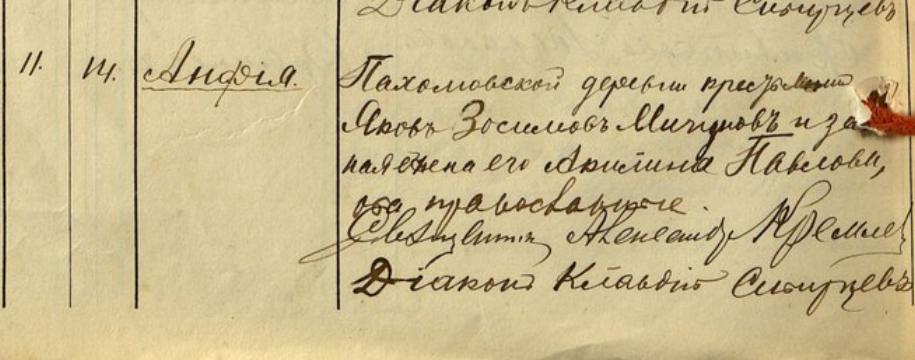 Діаконъ Клавдій Ситурцевъ
11. 14. Анфія.
Пахомовской деревни крестьянинъ
Яковъ Зосимовъ Мичуровъ и за-
конная жена его Акилина Павлова,
оба православные.
Священникъ Александръ Кремлев
Діаконъ Клавдій Ситурцевъ